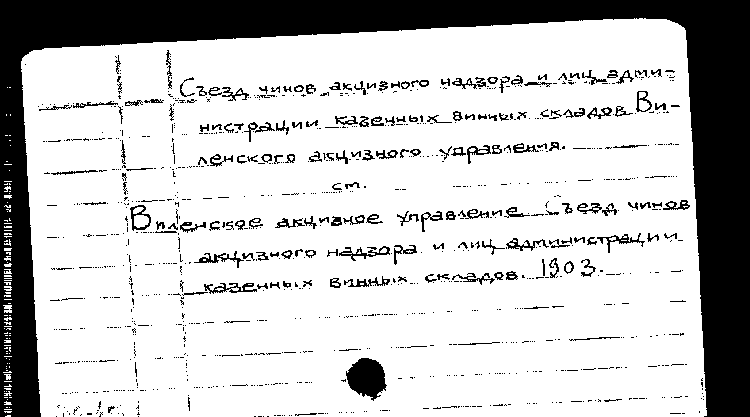 Съезд чинов акцизного надзора и лиц адми-
нистрации казенных винных складов Ви-
ленского акцизного управления.
см.
Виленское акцизное управление. Съезд чинов
акцизного надзора и лиц администрации
казенных винных складов. 1903.